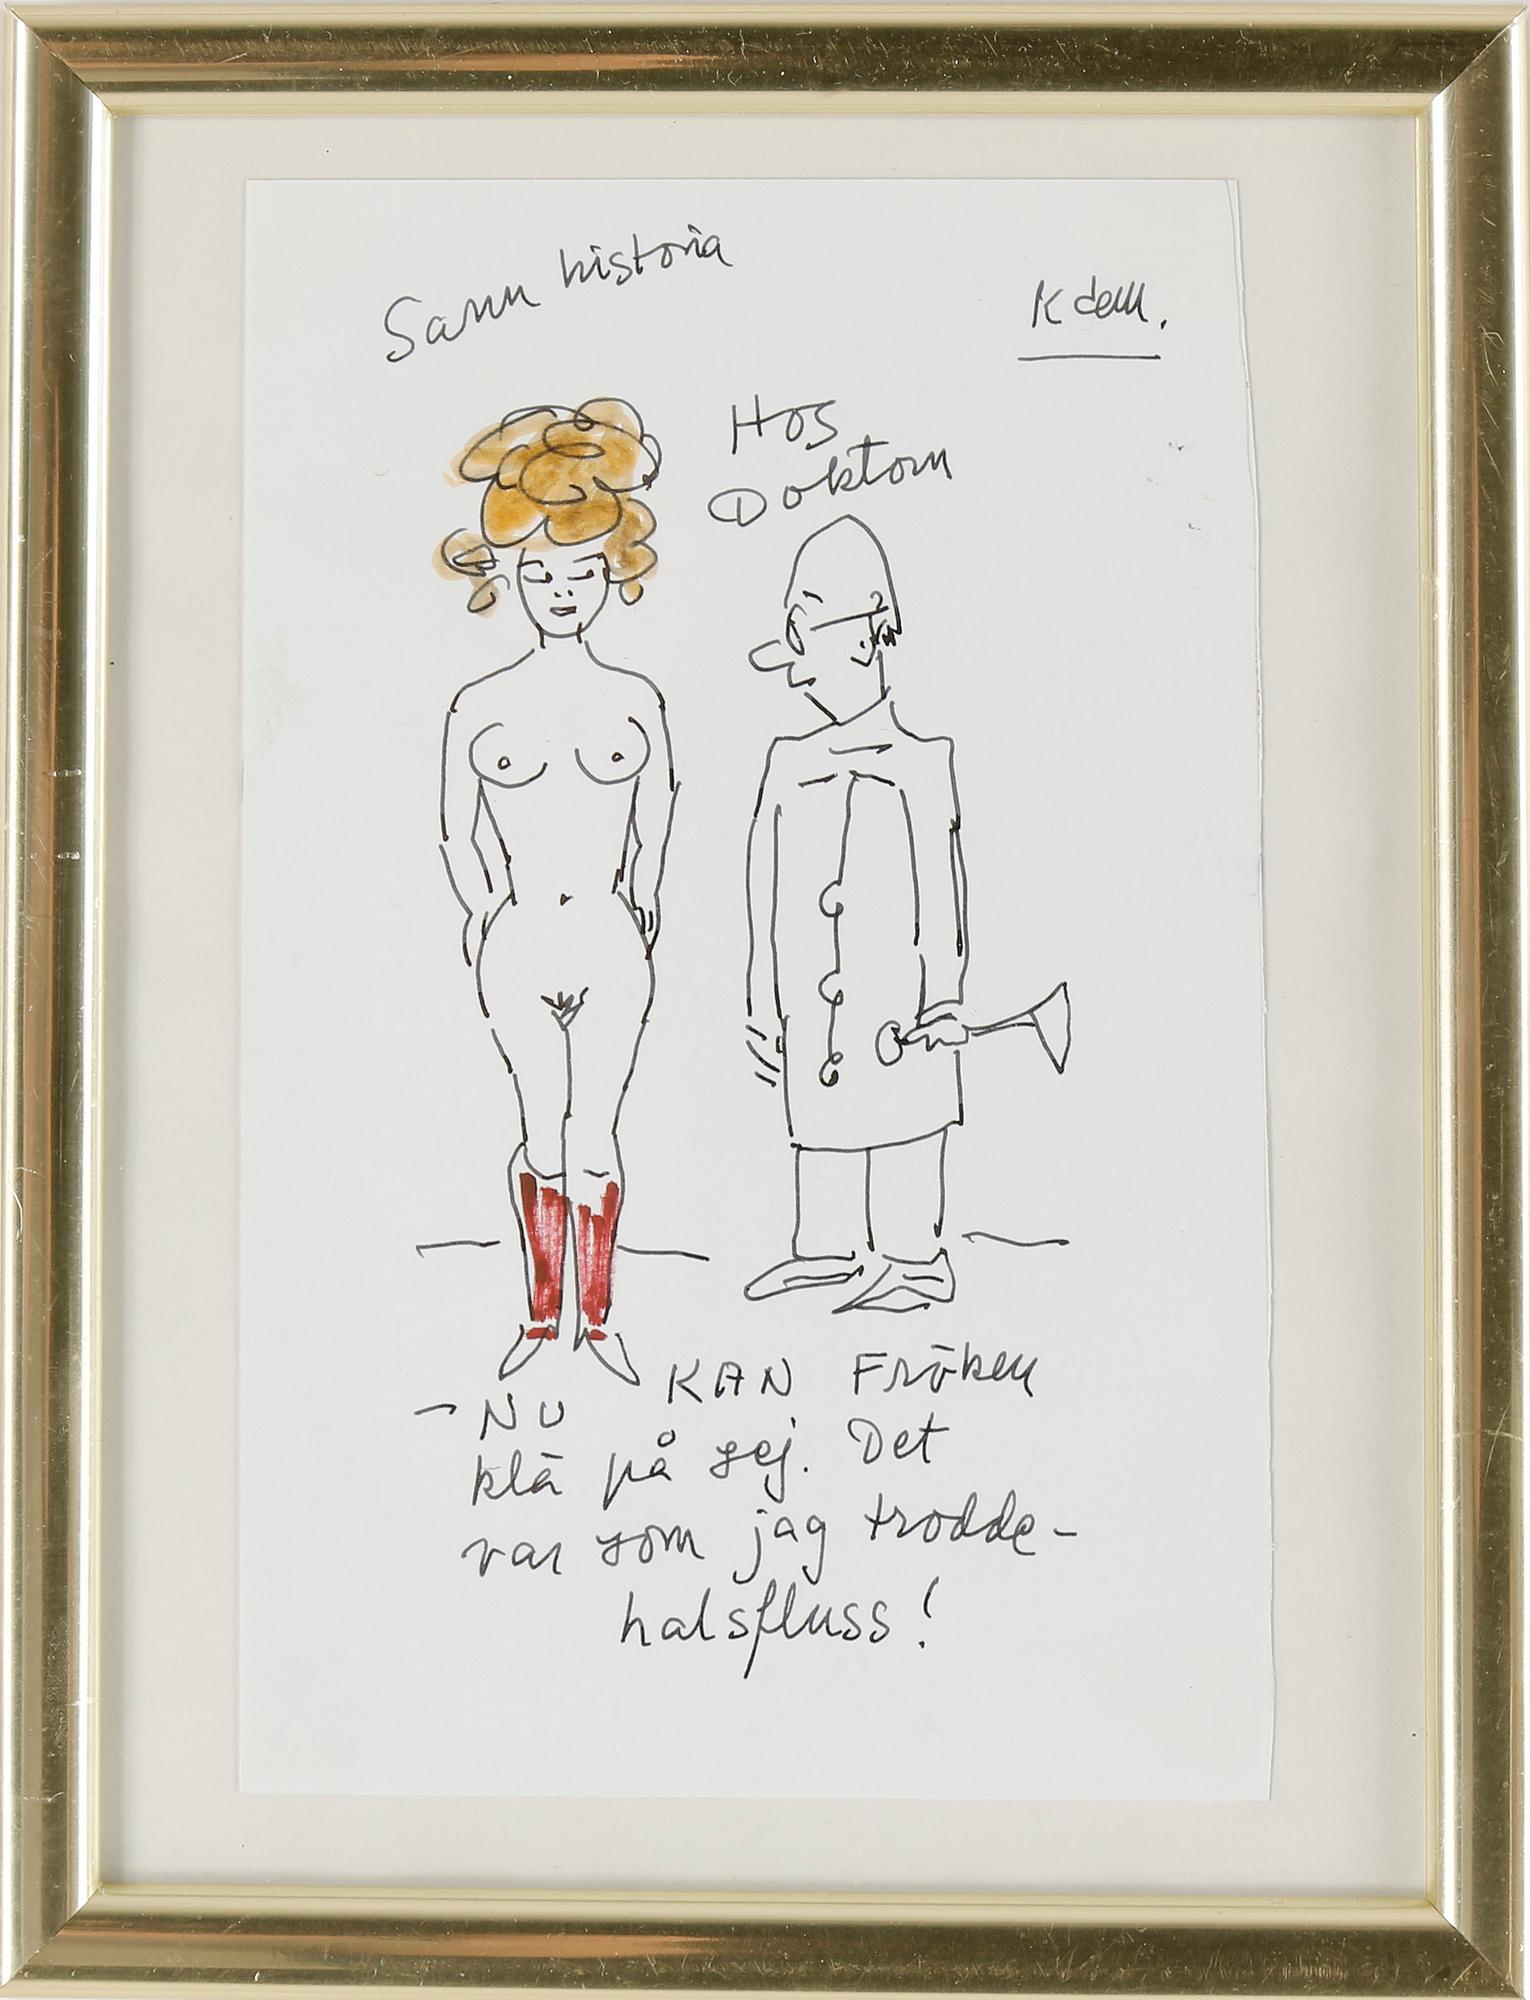 Sann historia
K dem.
Hos
Doktorn
- NU KAN Fröken
klä på sej. Det
var som jag trodde -
halsfluss!